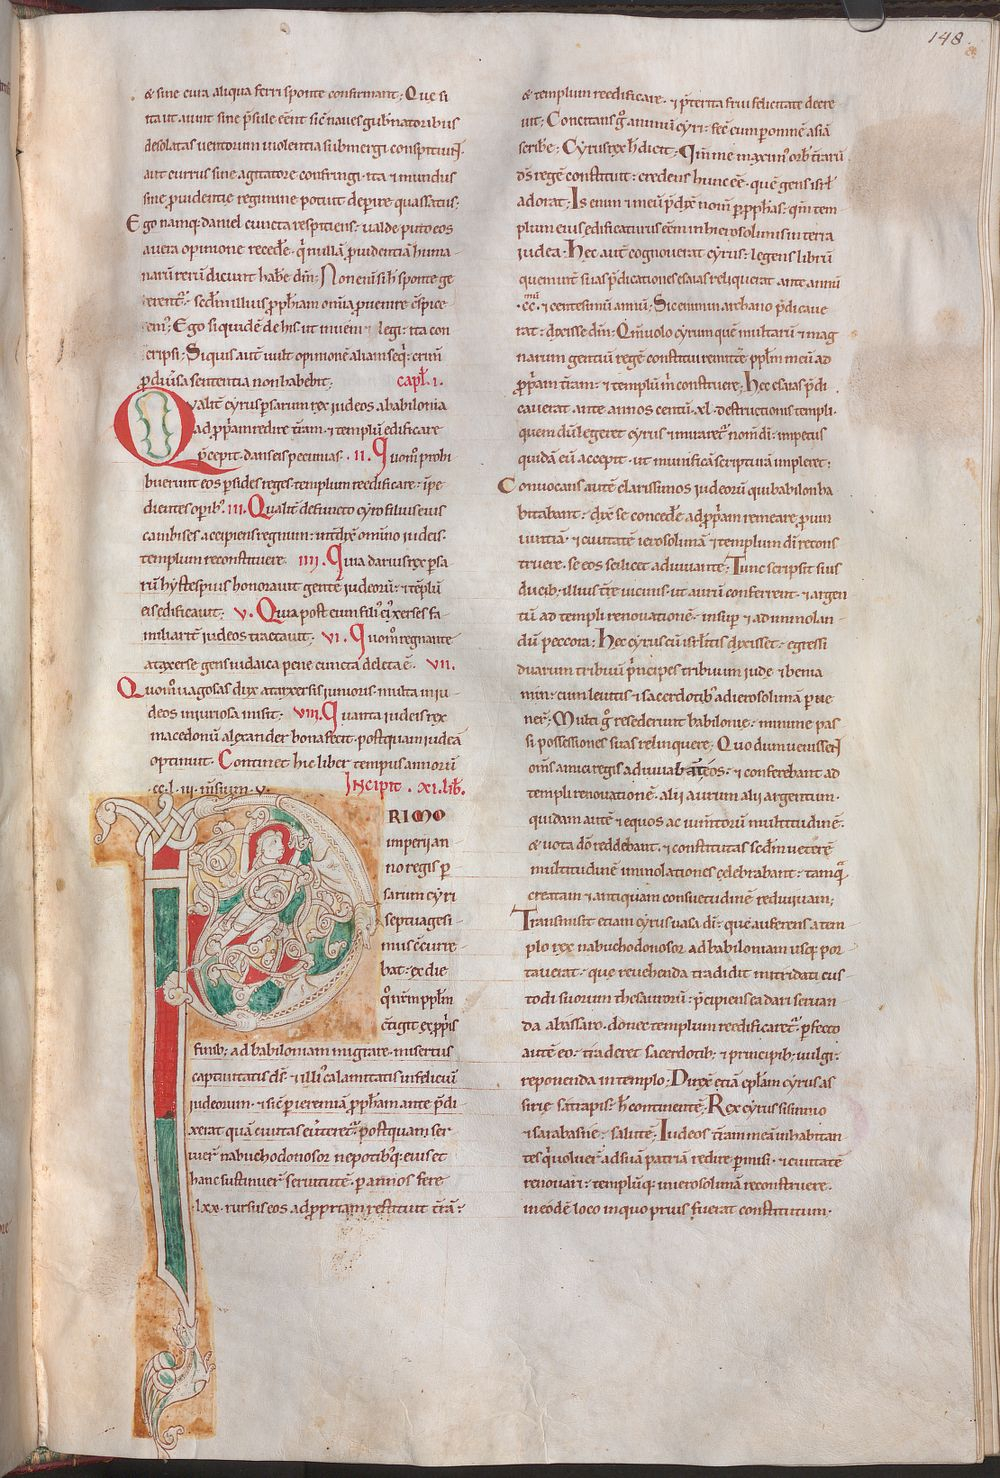 148.
& sine cura aliqua ferri sponte confirmant; Que si
ita ut aiunt sine p̄sule eēnt sic̄ naues gub̄natoribus
desolatas uentorum uiolentia submergi
aut currus sine agitatore confringi· ita & mundus
sine p̄uidentie regimine potuit deperire quassatus;
Ego namq; daniel cuncta respiciens· ualde puto eos
a uera opinione recedere· q̄ nullā p̄uidentiā huma
narū rerū dicunt hab̄e dm̄; Non eni sibi sponte ge
rerent᷑· sed scdm̄ illius pphiam omīa puenire
Ego siquidē de his ut inueni & legi· ita con
scripsi; Siquis aut̄ uult opinionē aliam seq̄·
p diu̅sa sententia non habebit; capl̄. i.
Qualit̄ cyrus psarum rex iudeos a babilonia
ad ppriam redire t̄ram· & templū edificare
p̄cepit· dans eis pecunias· ii. Quom̄ prohi
buerunt eos psides reges templum reedificare· īpe
dientes opib᷒· iii. Qualit̄ defuncto cyro filius eius
cambises accipiens regnum· int̄dix̄ omīno iudeis·
templum reconstituere· iiii. Quia darius rex psa
rū hystespius honorauit gentē iudeorū· & tēplū
eis edificauit· v. Quia post eum fili᷒ ei᷒ xerses fa
miliarit̄ iudeos tractauit· vi. Quom̄ regnante
ataxerse gens iudaica pene cuncta deleta ē· vii.
Quom̄ uagosas dux ataxersis iunioris· multa in iu
deos iniuriosa misit· viii. Quanta iudeis rex
macedonū alexander bona fecit· postquam iudeā
optinuit· Continet hic liber tempus annorū
·cc·l·iii· m̄sium· v· Incipit· xi· lib̄.
PRIMO
imperii an
no regis p
sarum cyri
septuagesi
mus ē curre
bat· ex die
q̄ n̄rm ppl̄m
c̄tigit ex ppriis
finib; ad babiloniam migrare· misertus
captiuitatis d̄s· & illi᷒ calamitatis infelicuī
iudeorum· & sic̄ p ieremiā pph̄am ante p̄di
xerat quā ciuitas eu̅teret᷑· postquam ser
uier̄ nabuchodonosor nepotibq; eius et
hanc sustinuer̄ seruitutē· p annos fere
·lxx· rursus eos ad propriam restituit t̄rā·
& templum reedificare· & p̄terita frui felicitate decre
uit; Concitans g̊ animū cyri· fec̄ eum p omnē asiā
scribere; Cyrus rex h̄ dicit; Qm̄ me maxim᷒ orb᷒ t̄rarū
d̄s regē constituit· credens hunc eē· quē gens isrl̄
adorat; Is enim & meū p̄dix̄ nom̄ p pphas· qm̄ tem
plum ei᷒ edificaturus eēm in hierosolimis in terra
iudea· Hec aut̄ cognouerat cyrus· legens librū
quem in t̄ suas p̄dicationes esaias reliquerat· ante annū
·cc·mū· & centesimū annū; Sic enim archano p̄dicaue
rat· dixisse dm̄; Qm̄ uolo cyrum quē multarū & mag
narum gentiū regē constitui remitt̄e ppl̄m meū ad
ppriam t̄ram· & templū m̄ construere; Hec esaias p̄di
cauerat· ante annos centū·xl· destructionis templi·
quem dū legeret cyrus & miraret᷑ nom̄ di· impetus
quidā eū accepit· ut munifica scriptura impleret;
Conuocans autē clarissimos iudeorū qui babilon ha
bitabant· dix̄ se concedere ad ppriam remeare puin
uintiā· & ciuitatē ierosolimā & templum di recons
truere· se eos scilicet adiuuante; Tunc scripsit suis
ducib; illius t̄re uicinis· ut aurū conferrent· & argen
tū ad templi renouationē· insup & ad immolan
dū peccora; Hec cyrus cū isrl̄itis dixisset· egressi
duarum tribuū p̄ncipes tribuum iude & benia
min· cum leuitis & sacerdotib᷒ ad ierosolimā p̄ue
ner̄; Multi g̊ resederunt babilonie· minime pas
si possessiones suas relinquere; Quo dum uenisseī
om̄s amici regis adiuuabant eos· & conferebant ad
templi renouationē· alii aurum alii argentum·
quidam autē & equos ac iumtorū multitudinē·
& uota do reddebant· & constitutas scdm̄ ueterē
multitudinē immolationes celebrabant· tamq̄
creatam & antiquam consuetudinē rediuiuam;
Transmisit etiam cyrus uasa di· que auferens a tem
plo rex nabuchodonosor ad babiloniam usq; por
tauerat· que reuehenda tradidit mitridati cus
todi suorum thesaurorū· p̄cipiens ea dari seruan
da abassaro· donec templum reedificaret᷑· pfecto
autē eo· traderet sacerdotib; & principib; uulgi·
reponenda in templo; Dirix̄ etiā epl̄am cyrus as
sirie satrapis· h̄ continentē; Rex cyrus sisinno
& sarabasne· salutē; Iudeos t̄ram meā inhabitan
tes q̄ uoluer̄ ad suā patriā redire pmisi· & ciuitatē
renouari· templūq; in ierosolimā reconstruere·
in eodē loco in quo prius fuerat constitutum·